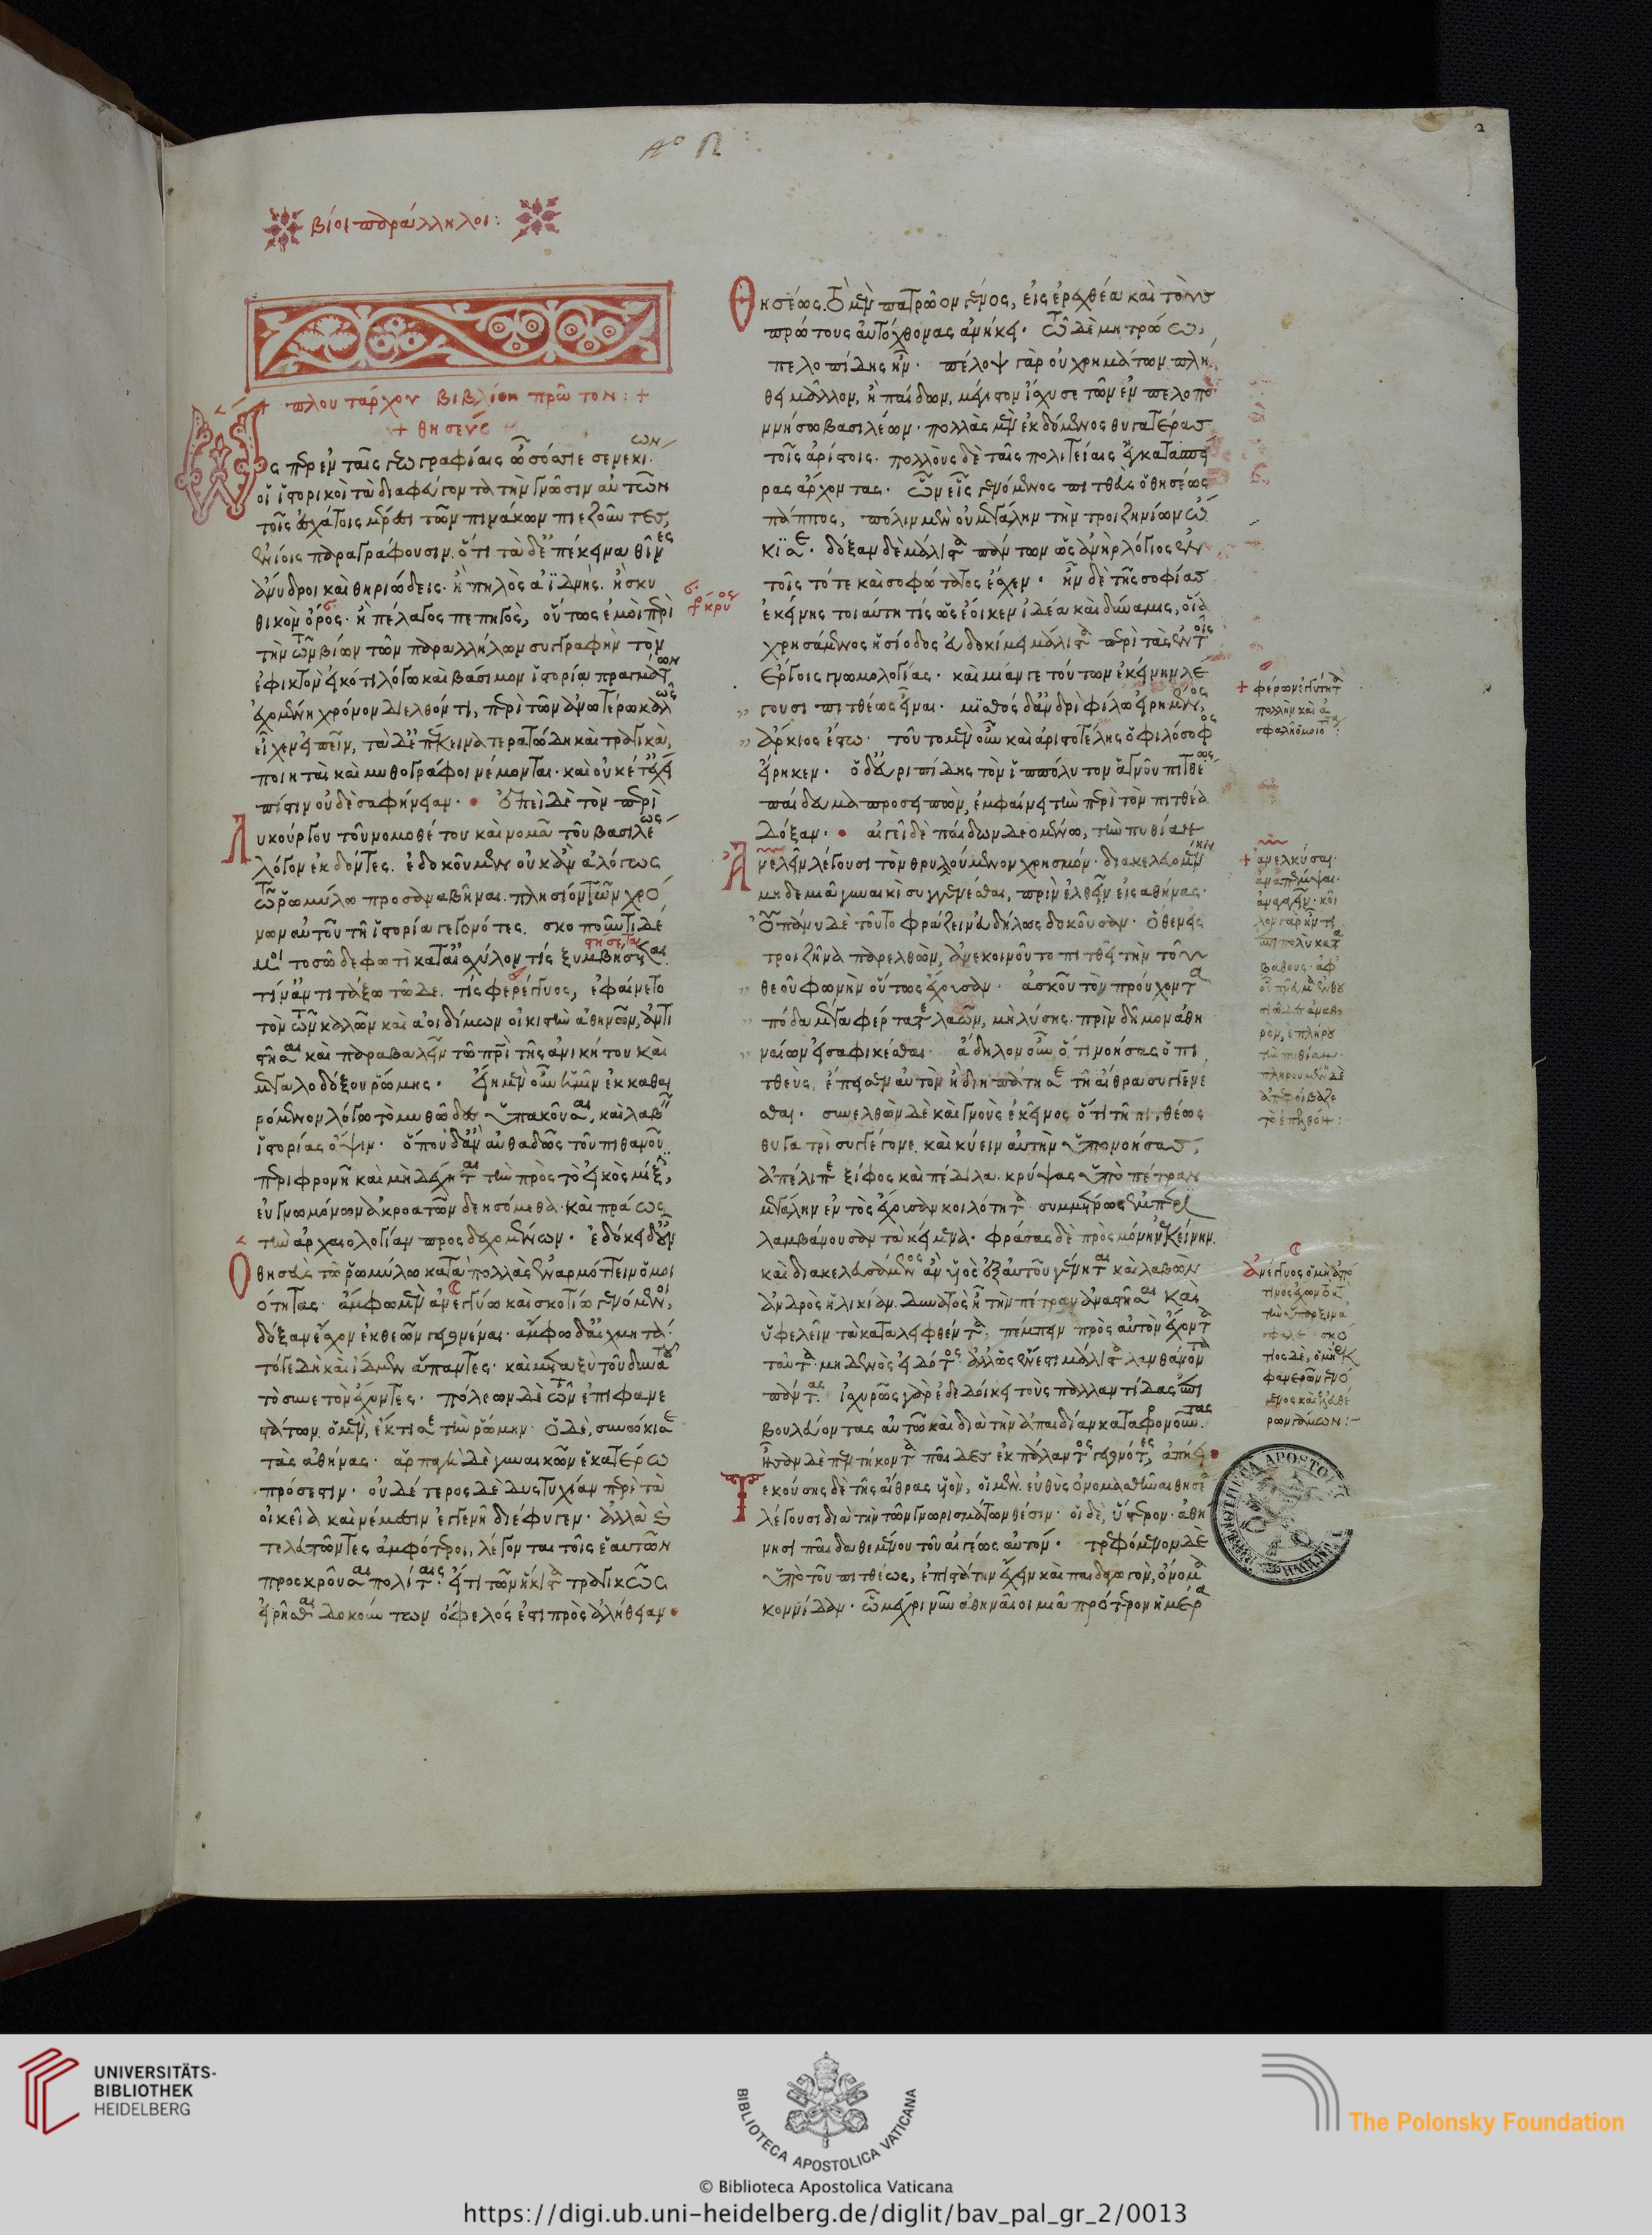 Nº 2
2
βίοι παράλληλοι:
+ πλουτάρχου βιβλίον πρῶτον: +
+ θησεύς
Ὥσπερ ἐν ταῖς γεωγραφίαις ὦ σόσσιε σενεκίων
οἱ ἱστορικοὶ τὰ διαφεύγοντα τὴν γνῶσιν αὐτῶν
τοῖς ἐσχάτοις μέρεσι τῶν πινάκων πιεζοῦντες,
ἐνίοις παραγράφουσιν. ὅτι τὰ δ' ἐπέκεινα θῖνες
ἄνυδροι καὶ θηριώδεις. ἢ πηλὸς ἀϊδνής. ἢ σκυ
θικὸν ὄρος. ἢ πέλαγος πεπηγός, οὕτως ἐμοὶ περὶ
τὴν τῶν βίων τῶν παραλλήλων συγγραφὴν τὸν
ἐφικτὸν εἰκότι λόγω καὶ βάσιμον ἱστορία πραγμάτων
ἐχομένη χρόνον διελθόντι, περὶ τῶν ἀνωτέρω καλῶς
εἶχεν εἰπεῖν, τὰ δ' ἐπέκεινα τερατώδη καὶ τραγικὰ,
ποιηταὶ καὶ μυθογράφοι νέμονται. καὶ οὐκέτ' ἔχει
πίστιν οὐδὲ σαφήνειαν. ἐπεὶ δὲ τὸν περὶ
Λυκούργου τοῦ νομοθέτου καὶ νομᾶ τοῦ βασιλέως
λόγον ἐκδόντες. ἐδοκοῦμεν οὐκ ἂν ἀλόγως
τῶ ῥωμύλω προσαναβῆναι. πλησίον τῶν χρό
νων αὐτοῦ τῆ ἱστορία γεγονότες. σκοποῦντι δέ
μοι τοσῶδε φωτὶ κατ' αἰσχύλον τίς ξυμβήσεται
τίν' ἀντιτάξω τῶδε. τίς φερέγγυος, ἐφαίνετο
τὸν τῶν καλῶν καὶ ἀοιδίμων οἰκιστὴν ἀθηνῶν, ἀντι
στῆσαι καὶ παραβαλεῖν τῶ πρὶ τῆς ἀνικήτου καὶ
μεγαλοδόξου ῥώμης. εἴη μὲν οὖν ἡμῖν ἐκκαθαι
ρόμενον λόγω τὸ μυθῶδες ὑπακοῦσαι, καὶ λαβεῖν
ἱστορίας ὄψιν. ὅπου δ' ἂν αὐθαδῶς τοῦ πιθανοῦ
περιφρονῆ καὶ μὴ δέχηται τὴν πρὸς τὸ εἰκὸς μίξιν,
εὐγνωμόνων ἀκροατῶν δεησόμεθα. καὶ πράως
τὴν ἀρχαιολογίαν προσδεχομένων. ἐδόκει δ' οὖν
Ὁ θησεὺς τῶ ῥωμύλω κατὰ πολλὰς ἐναρμόττειν ὁμοι
ότητας. ἄμφω μὲν ἀνεγγύω καὶ σκοτίω γενόμενοι,
δόξαν ἔσχον ἐκ θεῶν γεγονέναι. ἄμφω δ' αἰχμητά.
τόγε δὴ καὶ ἴδμεν ἅπαντες. καὶ μετὰ ξὺ τοῦ δυνατοῦ
τὸ συνετὸν ἔχοντες. πόλεων δὲ τῶν ἐπιφανε
στάτων. ὁ μὲν, ἔκτισε τὴν ῥώμην. ὁ δὲ, συνώκισε
τὰς ἀθήνας. ἁρπαγὴ δὲ γυναικῶν ἑκατέρω
πρόσεστιν. οὐδέτερος δὲ δυστυχίαν περὶ τὰ
οἰκεῖα καὶ νέμεσιν ἐγγενῆ διέφυγεν. ἀλλὰ καὶ
τελευτῶντες ἀμφότεροι, λέγονται τοῖς ἑαυτῶν
προσκροῦσαι πολίταις. εἴ τι τῶν ἥκιστα τραγικῶς
εἰρῆσθαι δοκούντων ὄφελός ἐστι πρὸς ἀλήθειαν
Θησέως. τὸ μὲν πατρῶον γένος, εἰς ἐρεχθέα καὶ τοὺς
πρώτους αὐτόχθονας ἀνήκει. τῶ δὲ μητρώω,
πελοπίδης ἦν. πέλοψ γὰρ οὐ χρημάτων πλή
θει μᾶλλον, ἢ παίδων, μέγιστον ἴσχυσε τῶν ἐν πελοπο
ννήσω βασιλέων. πολλὰς μὲν ἐκδόμενος θυγατέρας
τοῖς ἀρίστοις. πολλοὺς δὲ ταῖς πολιτείαις ἐγκατασπεί
ρας ἄρχοντας. ὧν εἷς γενόμενος πιτθεὺς ὁ θησέως
πάππος, πόλιν μὲν οὐ μεγάλην τὴν τροιζηνίων ὤ
κισε. δόξαν δὲ μάλιστα πάντων ὡς ἀνὴρ λόγιος ἐν
τοῖς τότε καὶ σοφώτατος ἔσχεν. ἦν δὲ τῆς σοφίας
ἐκείνης τοιαύτη τίς ὡς ἔοικεν ἰδέα καὶ δύναμις, οἵα
χρησάμενος ἡσίοδος εὐδοκίμει μάλιστα περὶ τὰς ἐν τοῖς
ἔργοις γνωμολογίας. καὶ μίαν γε τούτων ἐκείνην λέ
γουσι πιτθέως εἶναι. μισθὸς δ' ἀνδρὶ φίλω εἰρημένος,
ἄρκιος ἔστω. τοῦτο μὲν οὖν καὶ ἀριστοτέλης ὁ φιλόσοφος
εἴρηκεν. ὁ δ' εὐριπίδης τὸν ἱππόλυτον ἁγνοῦ πιτθέως
παίδευμα προσειπὼν, ἐμφαίνει τὴν περὶ τὸν πιτθέα
δόξαν. αἰγεῖ δὲ παίδων δεομένω, τὴν πυθίαν
ἀνελεῖν λέγουσι τὸν θρυλούμενον χρησμόν. διακελευομένην
μηδεμιᾶ γυναικὶ συγγενέσθαι, πρὶν ἐλθεῖν εἰς ἀθήνας.
οὐ πάνυ δὲ τοῦτο φράζειν εὐδήλως δοκοῦσαν. ὅθεν εἰς
τροιζῆνα παρελθὼν, ἀνεκοινοῦτο πιτθεῖ τὴν τοῦ
θεοῦ φωνὴν οὕτως ἔχουσαν. ἀσκοῦ τὸν προύχοντα
πόδα μέγα φέρτατε λαῶν, μὴ λύσης. πρὶν δῆμον ἀθη
ναίων εἰσαφικέσθαι. ἄδηλον οὖν ὅ τι νοήσας ὁ πι
τθεὺς, ἔπεισεν αὐτὸν ἢ διηπάτησε τῆ αἴθρα συγγενέ
σθαι. συνελθὼν δὲ καὶ γνοὺς ἐκεῖνος ὅτι τῆ πιτθέως
θυγατρὶ συγγέγονε. καὶ κύειν αὐτὴν ὑπονοήσας,
ἀπέλιπε ξίφος καὶ πέδιλα. κρύψας ὑπὸ πέτραν
μεγάλην ἐντὸς ἔχουσαν κοιλότητα συμμέτρως ἐμπερι
λαμβάνουσαν τὰ κείμενα. φράσας δὲ πρὸς μόνην ἐκείνην.
καὶ διακελευσάμενος ἂν υἱὸς ἐξ αὐτοῦ γένηται καὶ λαβὼν
ἀνδρὸς ἡλικίαν. δυνατὸς ᾖ τὴν πέτραν ἀναστῆσαι καὶ
ὑφελεῖν τὰ καταλειφθέντα, πέμπειν πρὸς αὐτὸν ἔχοντα
ταῦτα. μηδενὸς εἰδότος. ἀλλ' ὡς ἔνεστι μάλιστα λανθάνοντα
πάντας. ἰσχυρῶς γὰρ ἐδεδοίκει τοὺς παλλαντίδας ἐπι
βουλεύοντας αὐτῶ καὶ διὰ τὴν ἀπαιδίαν καταφρονοῦντας.
ἦσαν δὲ πεντήκοντα παῖδες ἐκ πάλλαντος γεγονότες, ἀπήει
Τεκούσης δὲ τῆς αἴθρας υἱὸν, οἱ μὲν. εὐθὺς ὀνομασθῆναι θησέα
λέγουσι διὰ τὴν τῶν γνωρισμάτων θέσιν. οἱ δὲ, ὕστερον. ἀθή
νησι παῖδα θεμένου τοῦ αἰγέως αὐτόν. τρεφόμενον δὲ
ὑπὸ τοῦ πιτθέως, ἐπιστάτην ἔχειν καὶ παιδαγωγὸν, ὄνομα
κοννίδαν. ὧ μέχρι νῦν ἀθηναῖοι μιᾶ πρότερον ἡμέρα
+ φερωνεγγύητα
πολλὴν καὶ ἀ
σφαλῆ
+ ἀνελκύσαι.
βάθους
πληρουμένω δὲ
ἀνέγγυος ὁ μὴ ἀπό
τινος ἔχων
τὴν ὕπαρξιν
σκό
τιος δὲ, ὁ μὴ ἐκ
φανερῶν γενό
μενος
γάμων:
UNIVERSITÄTS-
BIBLIOTHEK
HEIDELBERG
BIBLIOTECA APOSTOLICA VATICANA
The Polonsky Foundation
© Biblioteca Apostolica Vaticana
https://digi.ub.uni-heidelberg.de/diglit/bav_pal_gr_2/0013